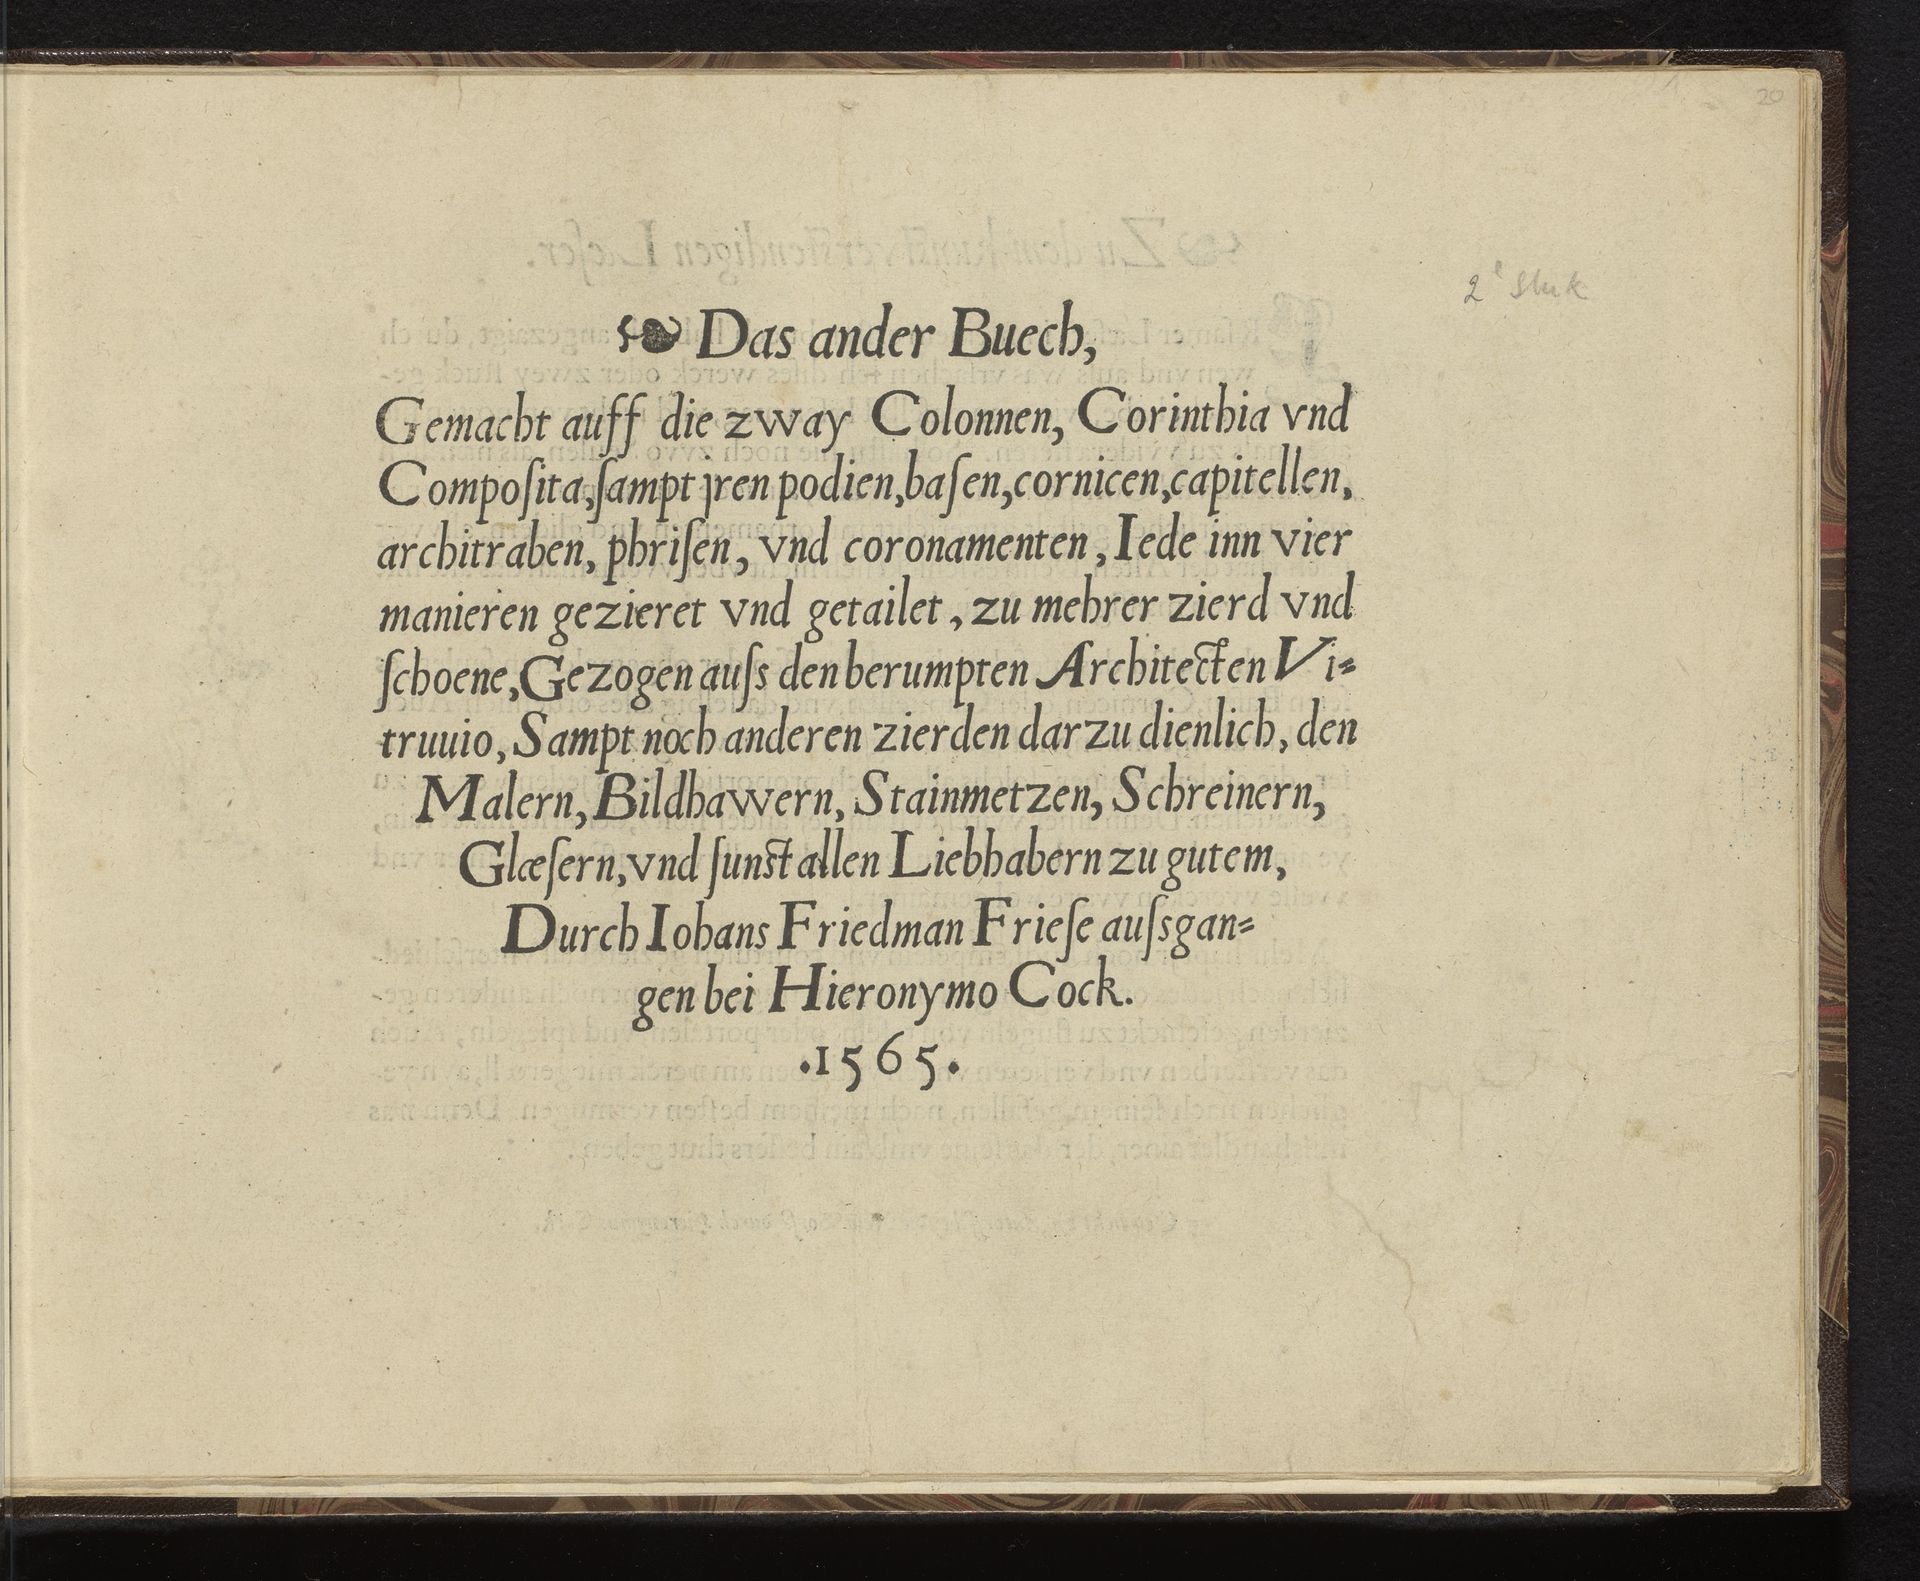 20
2e Stuk
❧ Das ander Buech,
Gemacht auff die zway Colonnen, Corinthia vnd
Compoſita, ſampt jren podien, baſen, cornicen, capitellen,
architraben, phriſen, vnd coronamenten, Iede inn vier
manieren gezieret vnd getailet, zu mehrer zierd vnd
ſchoene, Gezogen auſs den berumpten Architecten Vi-
truuio, Sampt noch anderen zierden darzu dienlich, den
Malern, Bildhawern, Stainmetzen, Schreinern,
Glæſern, vnd ſunſt allen Liebhabern zu gutem,
Durch Iohans Friedman Frieſe auſsgan-
gen bei Hieronymo Cock.
.1565.